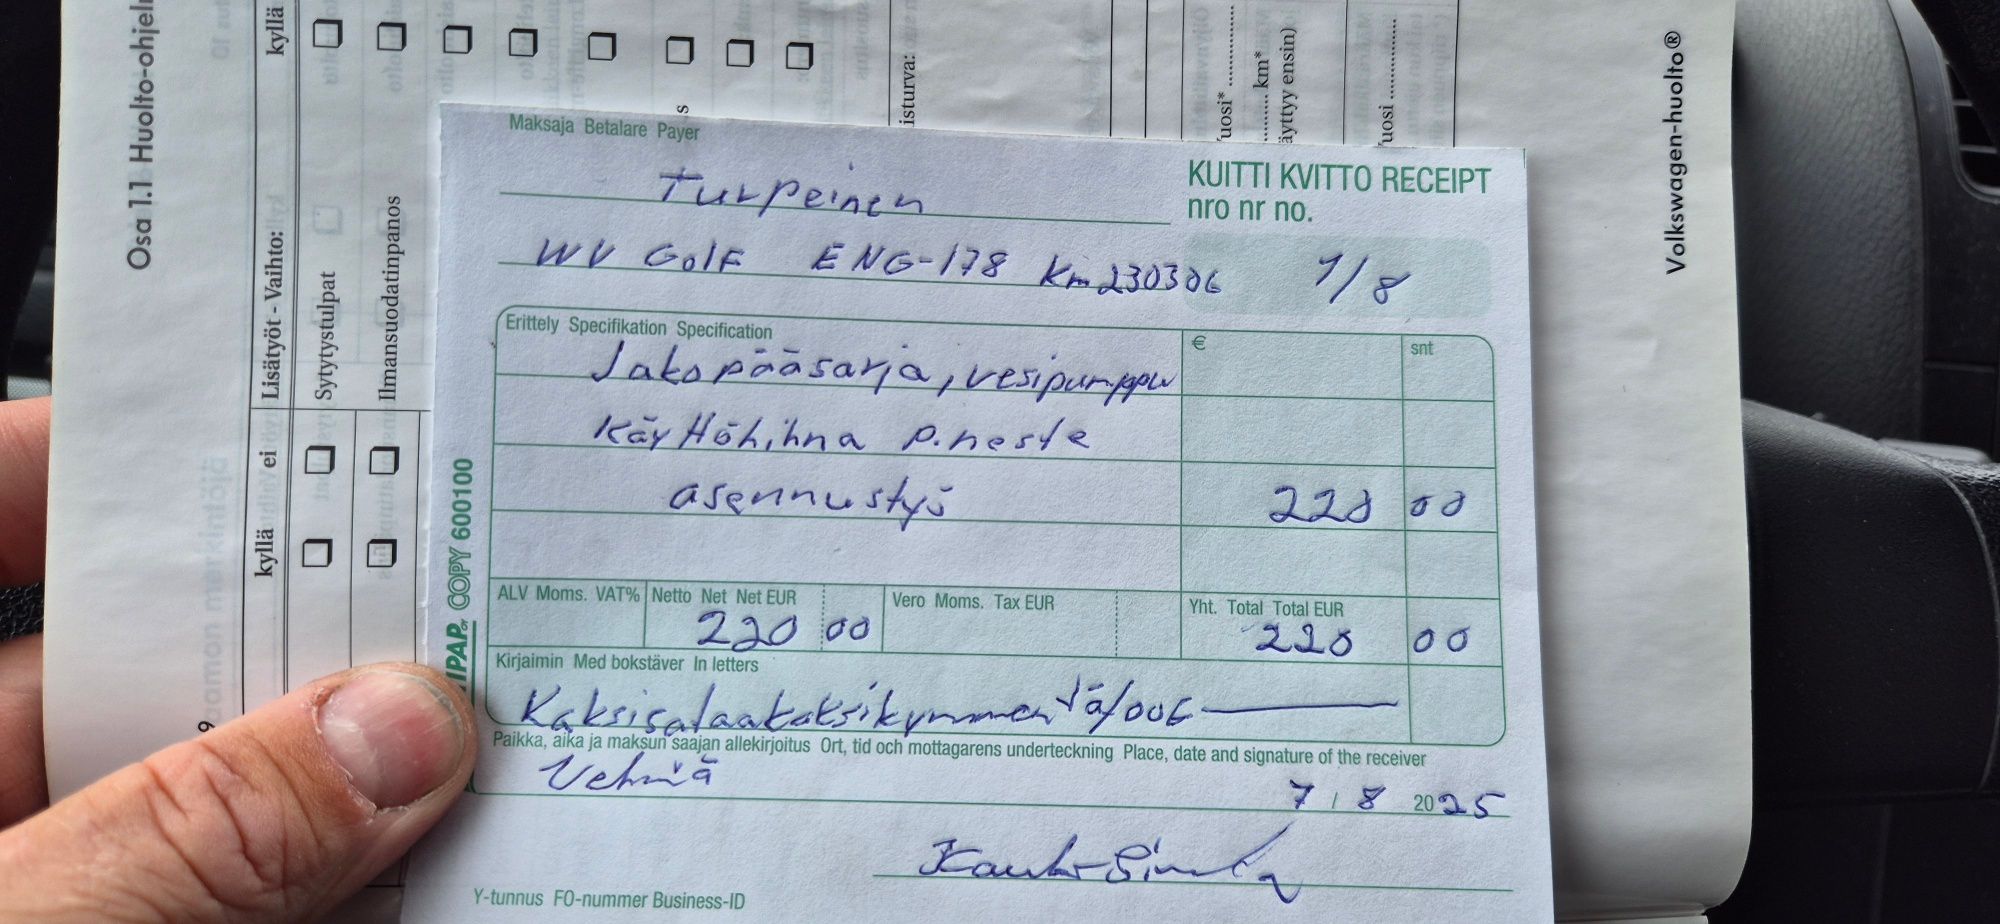 Osa 1.1 Huolto-ohjel
kyllä
Lisätyöt - Vaihto:
ei
kyllä
Sytytystulpat
Ilmansuodatinpanos
s
isturva:
uosi* ..................
......... km*
äyttyy ensin)
uosi ..................
Volkswagen-huolto®
9
Maksaja Betalare Payer
Turpeinen
KUITTI KVITTO RECEIPT
nro nr no.
WV Golf ENG-178 Km 230306
1/8
Erittely Specifikation Specification
€
snt
Jakopääsarja, vesipumppu
Käyttöhihna p.neste
asennustyö 220 00
ALV Moms. VAT% Netto Net Net EUR Vero Moms. Tax EUR Yht. Total Total EUR
220 00 220 00
Kirjaimin Med bokstäver In letters
Kaksisataakaksikymmentä/00€
Paikka, aika ja maksun saajan allekirjoitus Ort, tid och mottagarens underteckning Place, date and signature of the receiver
Vehmä
7 / 8 2025
Y-tunnus FO-nummer Business-ID
COPY 600100